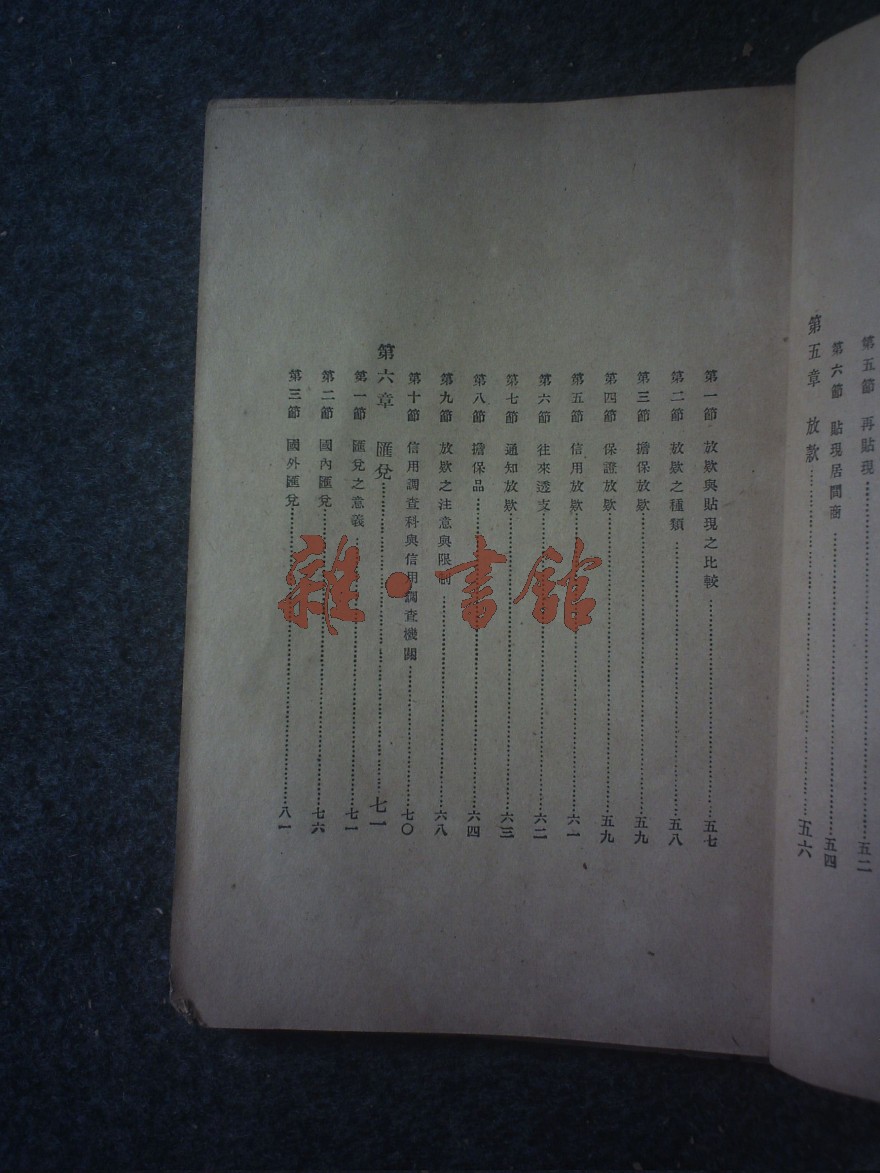 第五節　再貼現……五二
第六節　貼現居間商……五四
第五章　放款……五六
第一節　放欵與貼現之比較……五七
第二節　放欵之種類……五八
第三節　擔保放欵……五九
第四節　保證放欵……五九
第五節　信用放欵……六一
第六節　往來透支……六二
第七節　通知放欵……六三
第八節　擔保品……六四
第九節　放欵之注意與限制……六八
第十節　信用調查科與信用調查機關……七〇
第六章　匯兌……七一
第一節　匯兌之意義……七一
第二節　國內匯兌……七六
第三節　國外匯兌……八一
雜·書館